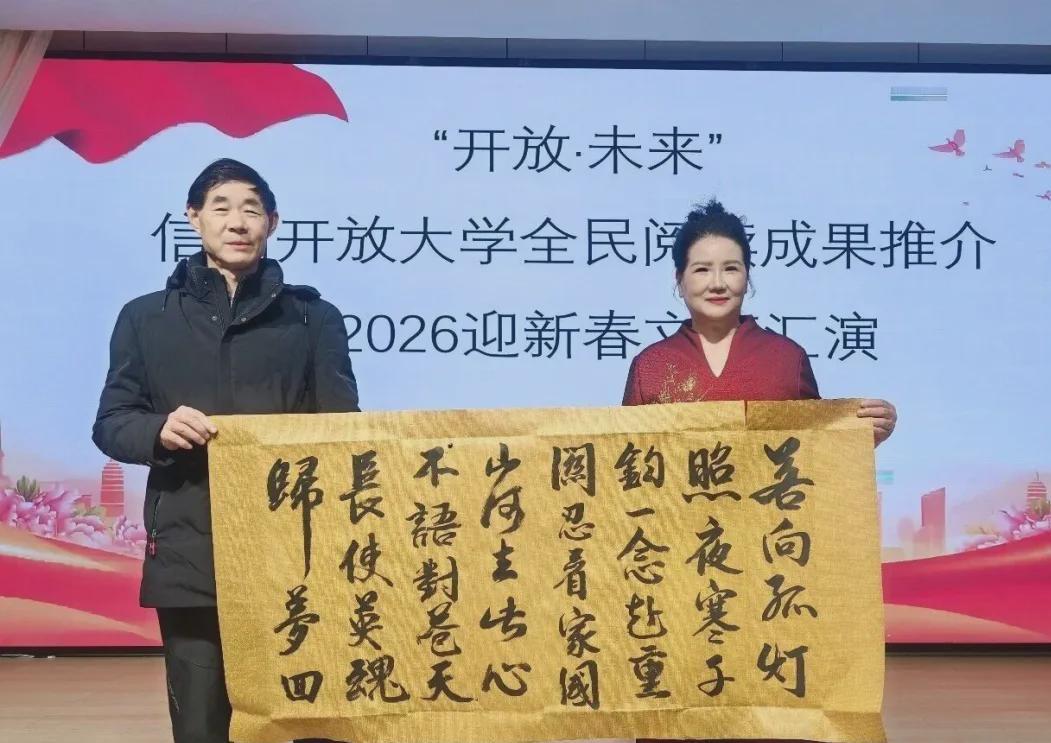 “开放·未来”
信 开放大学全民阅读成果推介
2026迎新春文 汇演
向孤灯
照夜寒千
鈞一念赴重
關忍看家國
山河 心
不語對蒼天
長使英魂
歸夢回